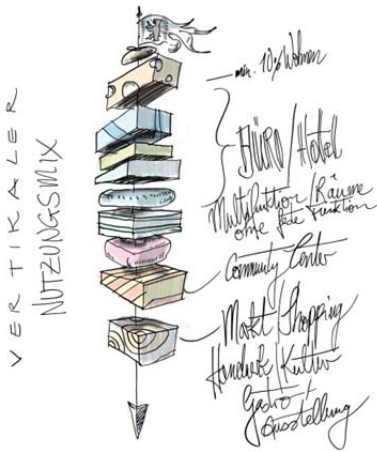 VERTIKALER
NUTZUNGSMIX
min. 10% Wohnen
BÜRO/Hotel
Multifunktion/Räume
ohne feste Funktion
Community Center
Markt/Shopping
Handwerk/Kultur
Gastro +
Ausstellung